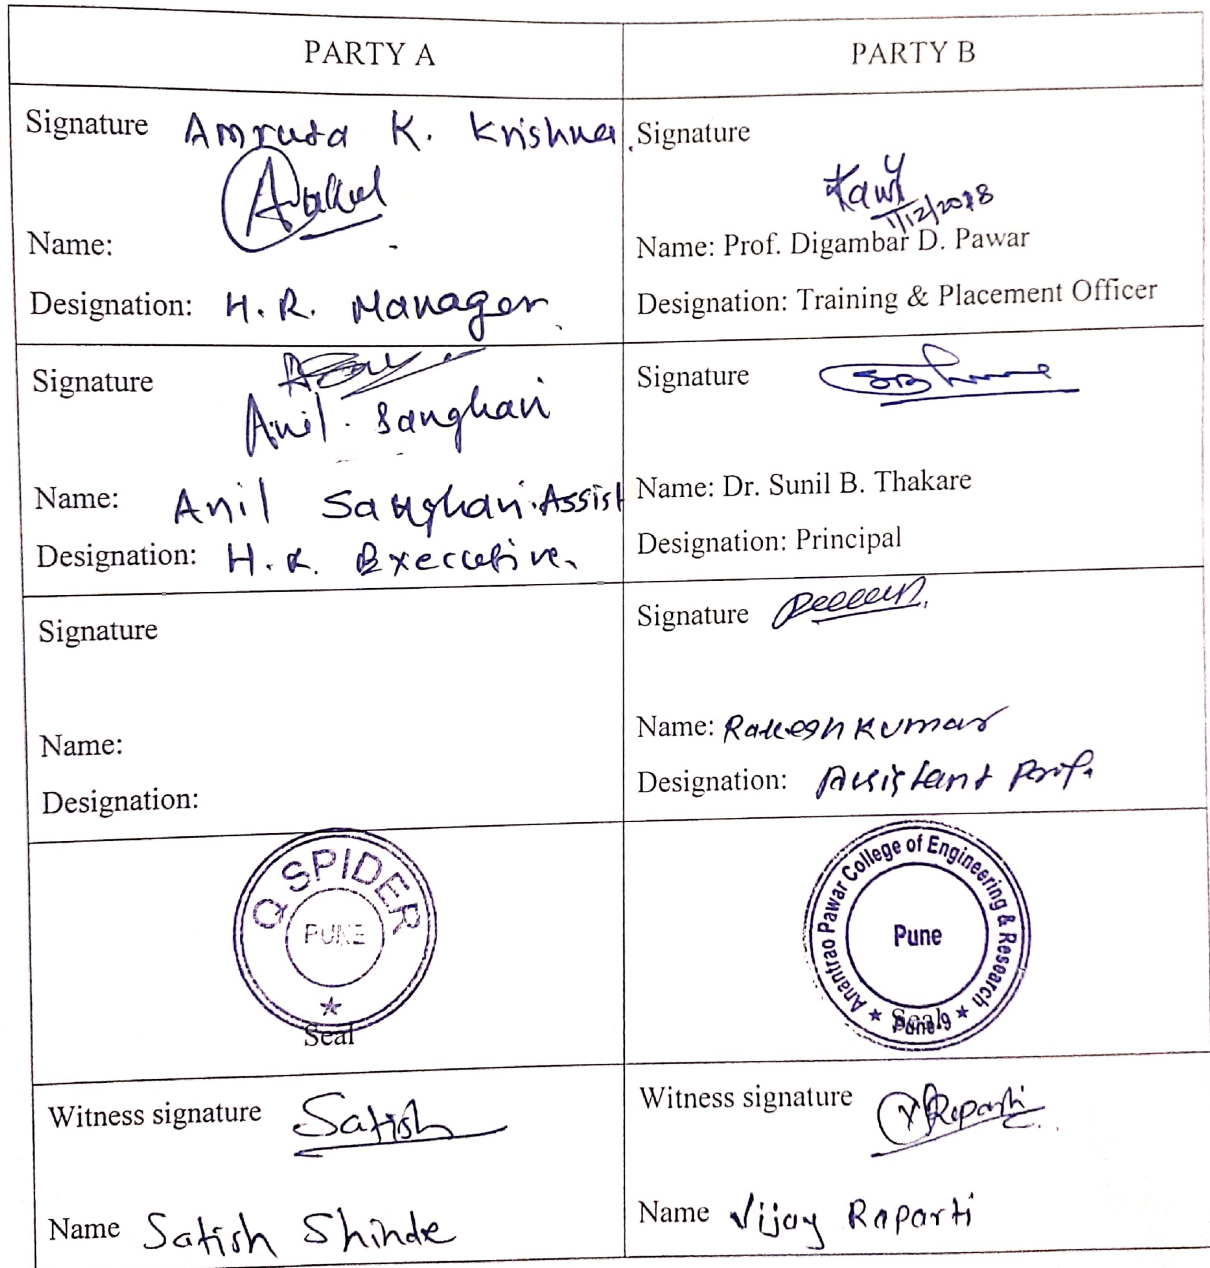 PARTY A
PARTY B
Signature Amruta K. Krishna.
Name:
Designation: H.R. Manager
Signature
1/12/2018
Name: Prof. Digambar D. Pawar
Designation: Training & Placement Officer
Signature
Anil Sanghavi
Name: Anil Sanghavi. Assist
Designation: H.R. Executive.
Signature
Name: Dr. Sunil B. Thakare
Designation: Principal
Signature
Name:
Designation:
Signature
Name: Rakesh Kumar
Designation: Assistant Prof.
Q SPIDER
PUNE
Seal
Anantrao Pawar College of Engineering & Research
Pune
Pune 9
Seal
Witness signature Satish
Name Satish Shinde
Witness signature Raparti
Name Vijay Raparti